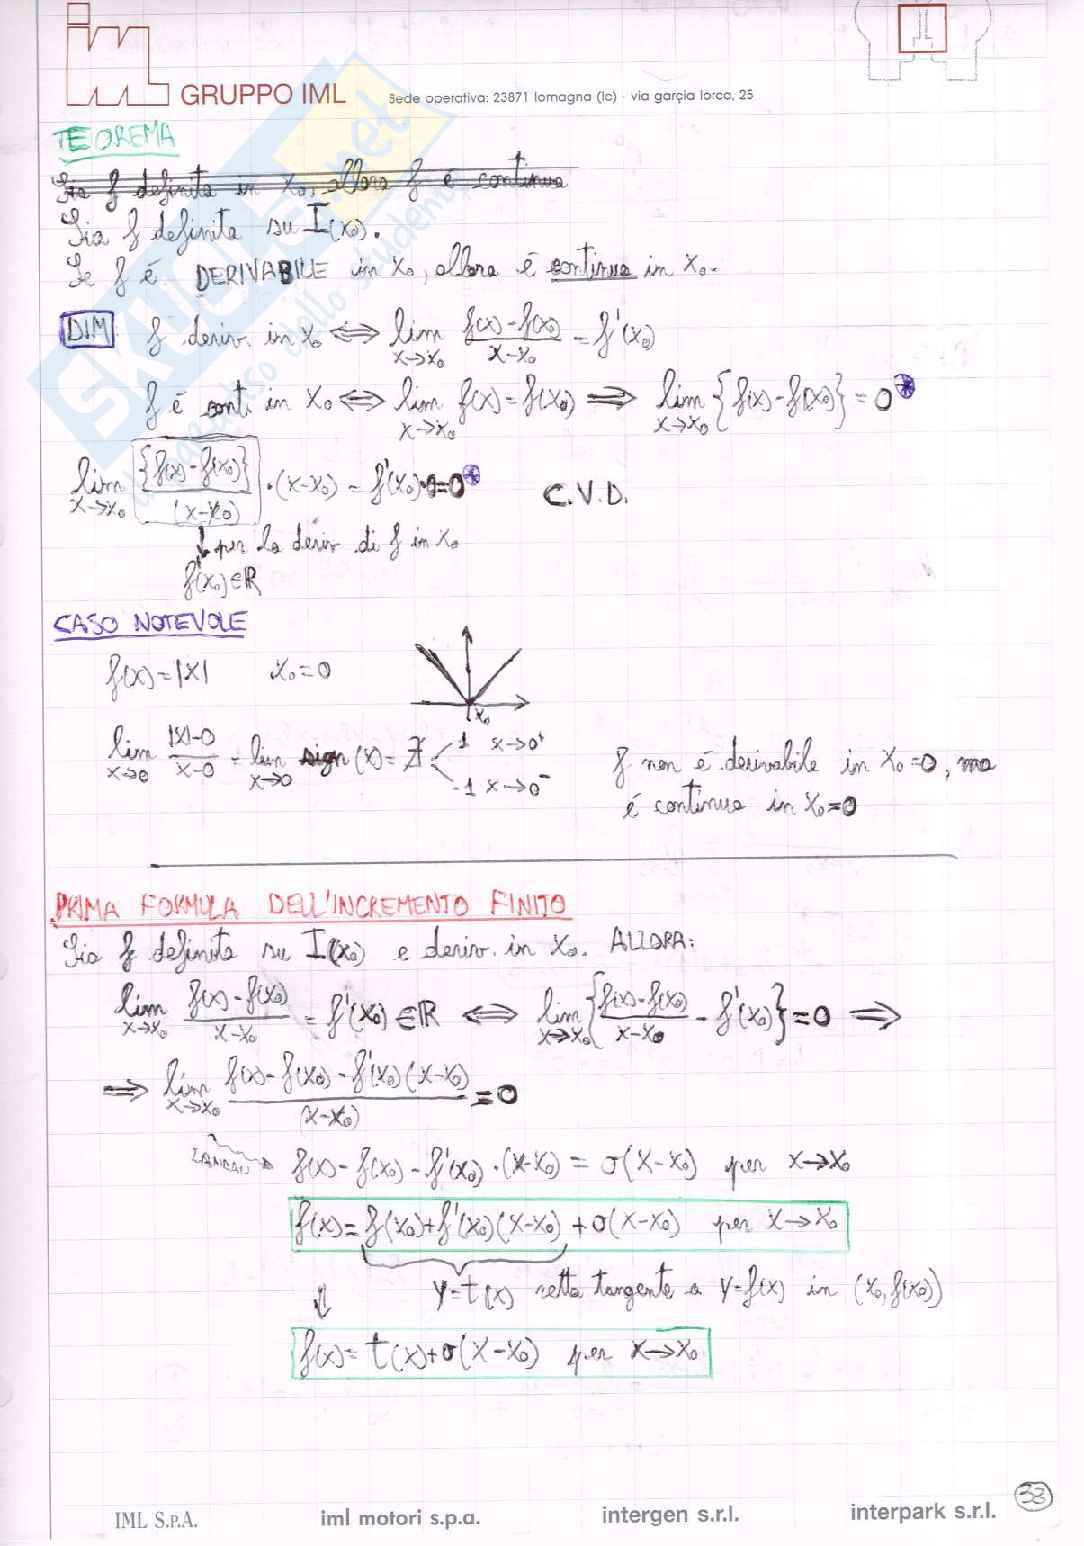 im
GRUPPO IML Sede operativa: 23871 lomagna (lc) - via garçia lorca, 25
SKUOLA.net
il paradiso dello studente
TEOREMA
Sia f definita in x₀, allora f é continua
Sia f definita su I(x₀).
Se f é DERIVABILE in x₀, allora é continua in x₀.
DIM f deriv. in x₀ ⟺ lim x→x₀ (f(x)-f(x₀))/(x-x₀) = f'(x₀)
f é cont. in x₀ ⟺ lim x→x₀ f(x) = f(x₀) ⟹ lim x→x₀ {f(x)-f(x₀)} = 0 *
lim x→x₀ {f(x)-f(x₀)}/(x-x₀) · (x-x₀) = f'(x₀)·0=0 * C.V.D.
↓ per la deriv. di f in x₀
f'(x₀)∈ℝ
CASO NOTEVOLE
f(x)=|x| x₀=0
x₀
lim x→0 (|x|-0)/(x-0) = lim x→0 sign(x) = ∄ < 1 x→0⁺
-1 x→0⁻
f non é derivabile in x₀=0, ma
é continua in x₀=0
PRIMA FORMULA DELL'INCREMENTO FINITO
Sia f definita su I(x₀) e deriv. in x₀. ALLORA:
lim x→x₀ (f(x)-f(x₀))/(x-x₀) = f'(x₀) ∈ℝ ⟺ lim x→x₀ {(f(x)-f(x₀))/(x-x₀) - f'(x₀)} = 0 ⟹
⟹ lim x→x₀ (f(x)-f(x₀)-f'(x₀)(x-x₀))/(x-x₀) = 0
LANDAU → f(x)-f(x₀)-f'(x₀)·(x-x₀) = o(x-x₀) per x→x₀
f(x)=f(x₀)+f'(x₀)(x-x₀)+o(x-x₀) per x→x₀
⇓ y=t(x) retta tangente a y=f(x) in (x₀,f(x₀))
f(x)=t(x)+o(x-x₀) per x→x₀
38
IML S.P.A. iml motori s.p.a. intergen s.r.l. interpark s.r.l.